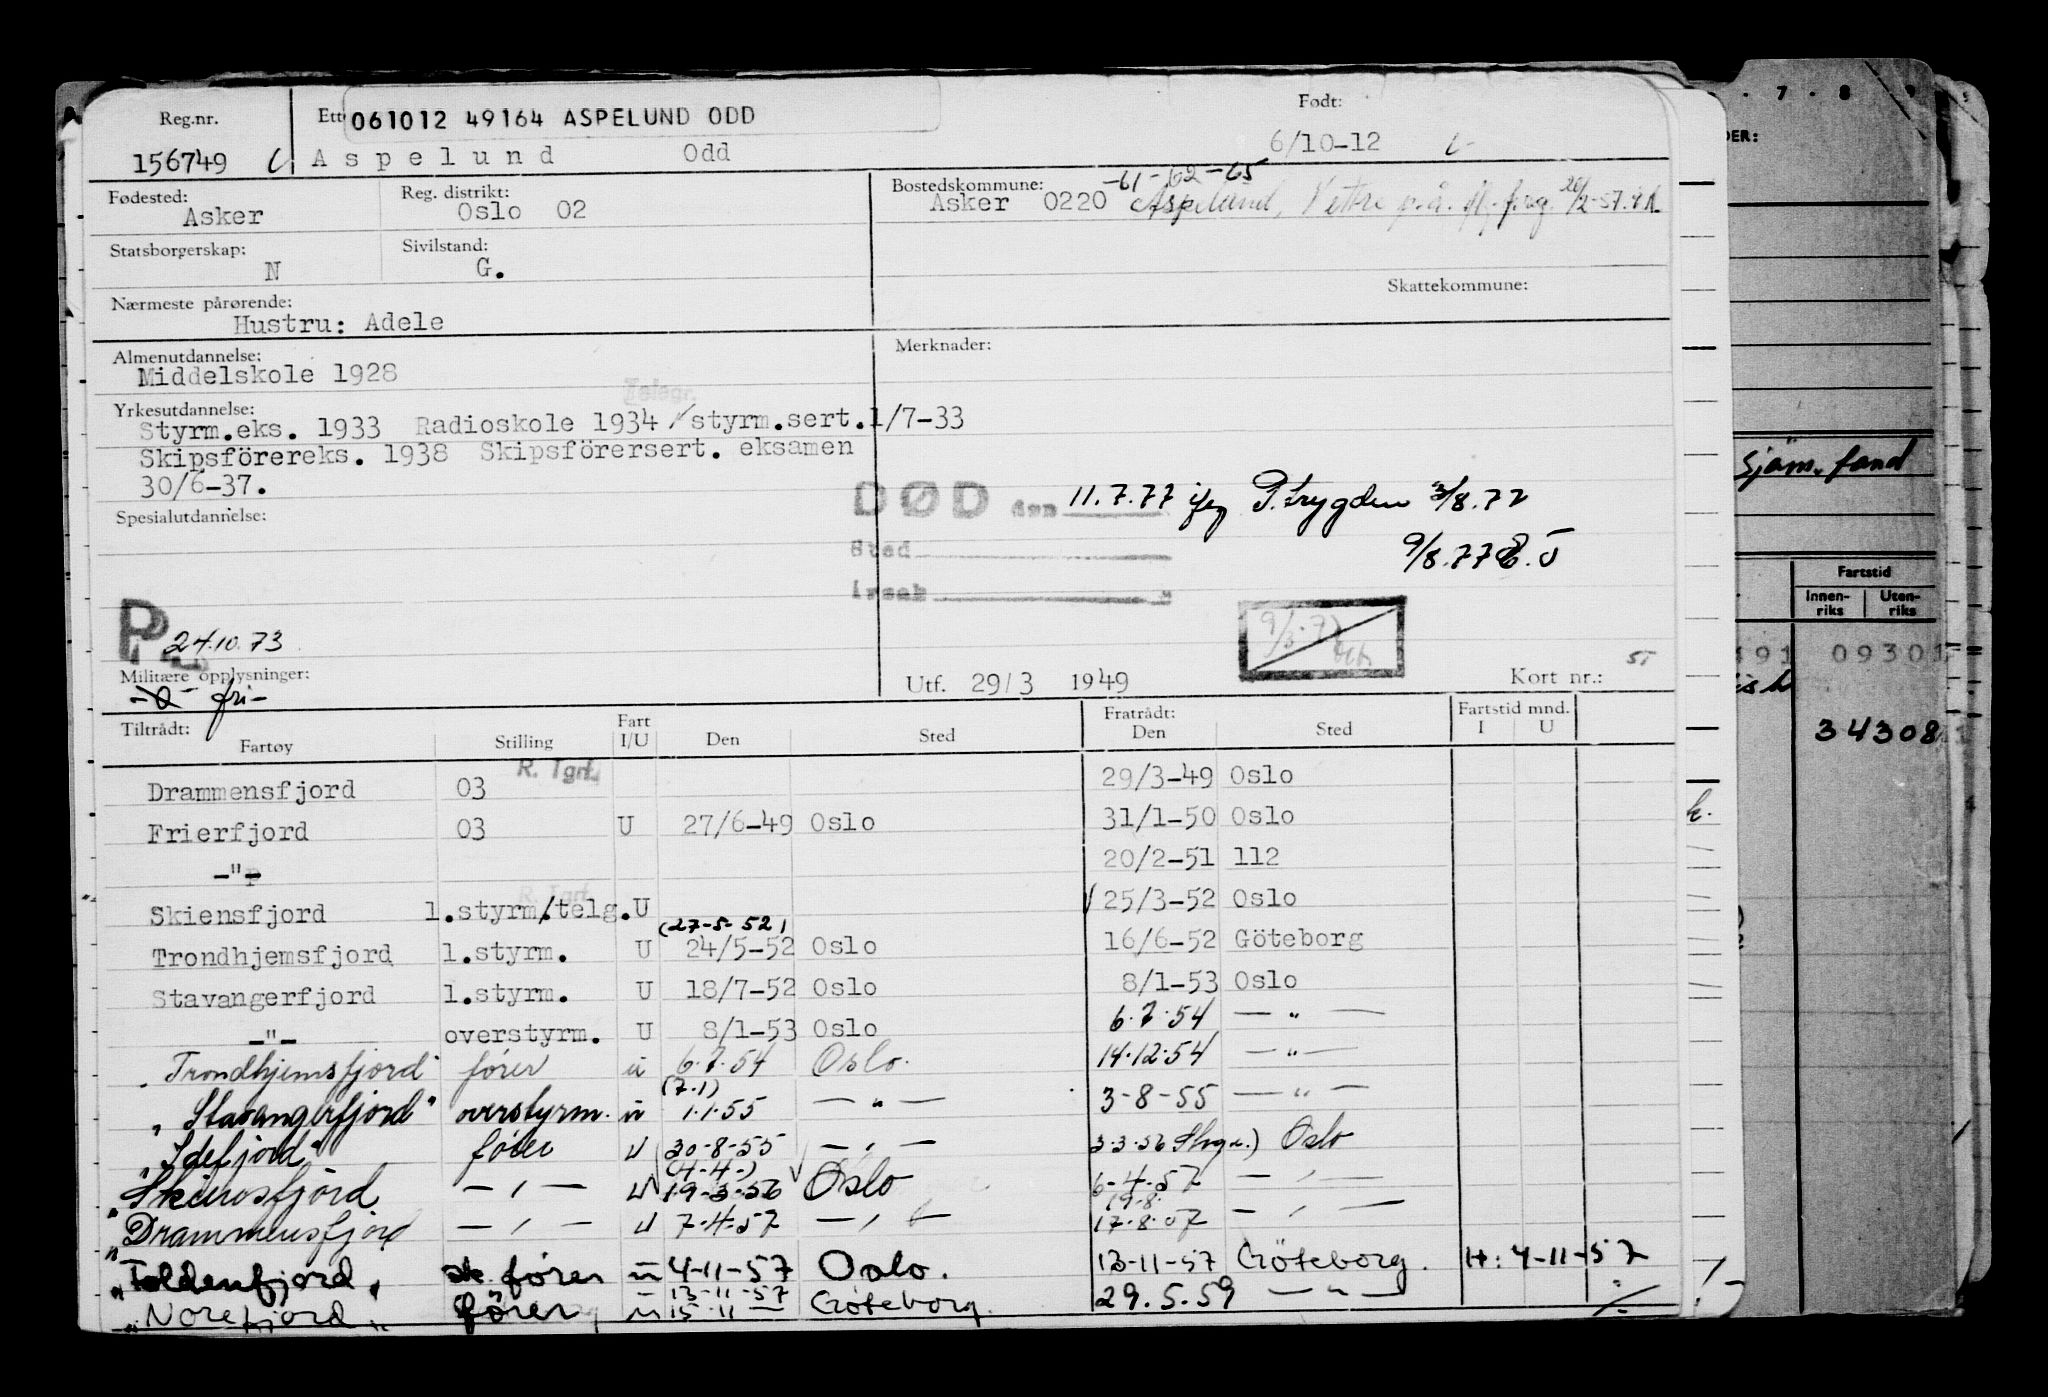 Reg.nr. Ett 061012 49164 ASPELUND ODD Født:
156749 Aspelund Odd 6/10-12
Fødested: Reg. distrikt: Bostedskommune: -61-62-65
Asker Oslo 02 Asker 0220 Aspelund, Vettre p.å.
Statsborgerskap: Sivilstand:
N G.
Nærmeste pårørende: Skattekommune:
Hustru: Adele
Almenutdannelse: Merknader:
Middelskole 1928
Telegr.
Yrkesutdannelse:
Styrm.eks. 1933 Radioskole 1934 / styrm.sert.1/7-33
Skipsförereks. 1938 Skipsförersert. eksamen
30/6-37.
DØD den 11.7.77 P.trygden 3/8.77
Spesialutdannelse:
Sted 9/8.77
Årsak
P 24.10.73
Militære opplysninger: Utf. 29/3 1949 Kort nr.:
fri-
Tiltrådt: Fart Fratrådt: Fartstid mnd.
Fartøy Stilling I/U Den Sted Den Sted I U
R. Tgrf.
Drammensfjord 03 29/3-49 Oslo
Frierfjord 03 U 27/6-49 Oslo 31/1-50 Oslo
-"- 20/2-51 112
R. Tgrf.
Skiensfjord 1.styrm/telg. U 25/3-52 Oslo
(27-5-52)
Trondhjemsfjord 1.styrm. U 24/5-52 Oslo 16/6-52 Göteborg
Stavangerfjord 1.styrm. U 18/7-52 Oslo 8/1-53 Oslo
-"- overstyrm. U 8/1-53 Oslo 6.7.54 — " —
"Trondhjemsfjord" fører u 6.7.54 Oslo. 14.12.54 — " —
(7.1)
"Stavangerfjord" overstyrm. u 1.1.55 — " — 3-8-55 — " —
"Idefjord" fører U 30-8-55 — " — 3.3.56 Oslo
(4-4-)
"Skiensfjord — " — U 19-3-56 Oslo 6-4-57 — " —
19-8.
"Drammensfjord — " — U 7-4-57 — " — 17.8.57 — " —
"Foldenfjord" fører u 4-11-57 Oslo. 13-11-57 Göteborg. H: 4-11-57
13-11-57
"Norefjord" fører u 15-11 — Göteborg. 29.5.59 — " —
7 8 9
DER:
Sjøm. fond
Fartstid
Innen-riks Uten-riks
491 09301
34308